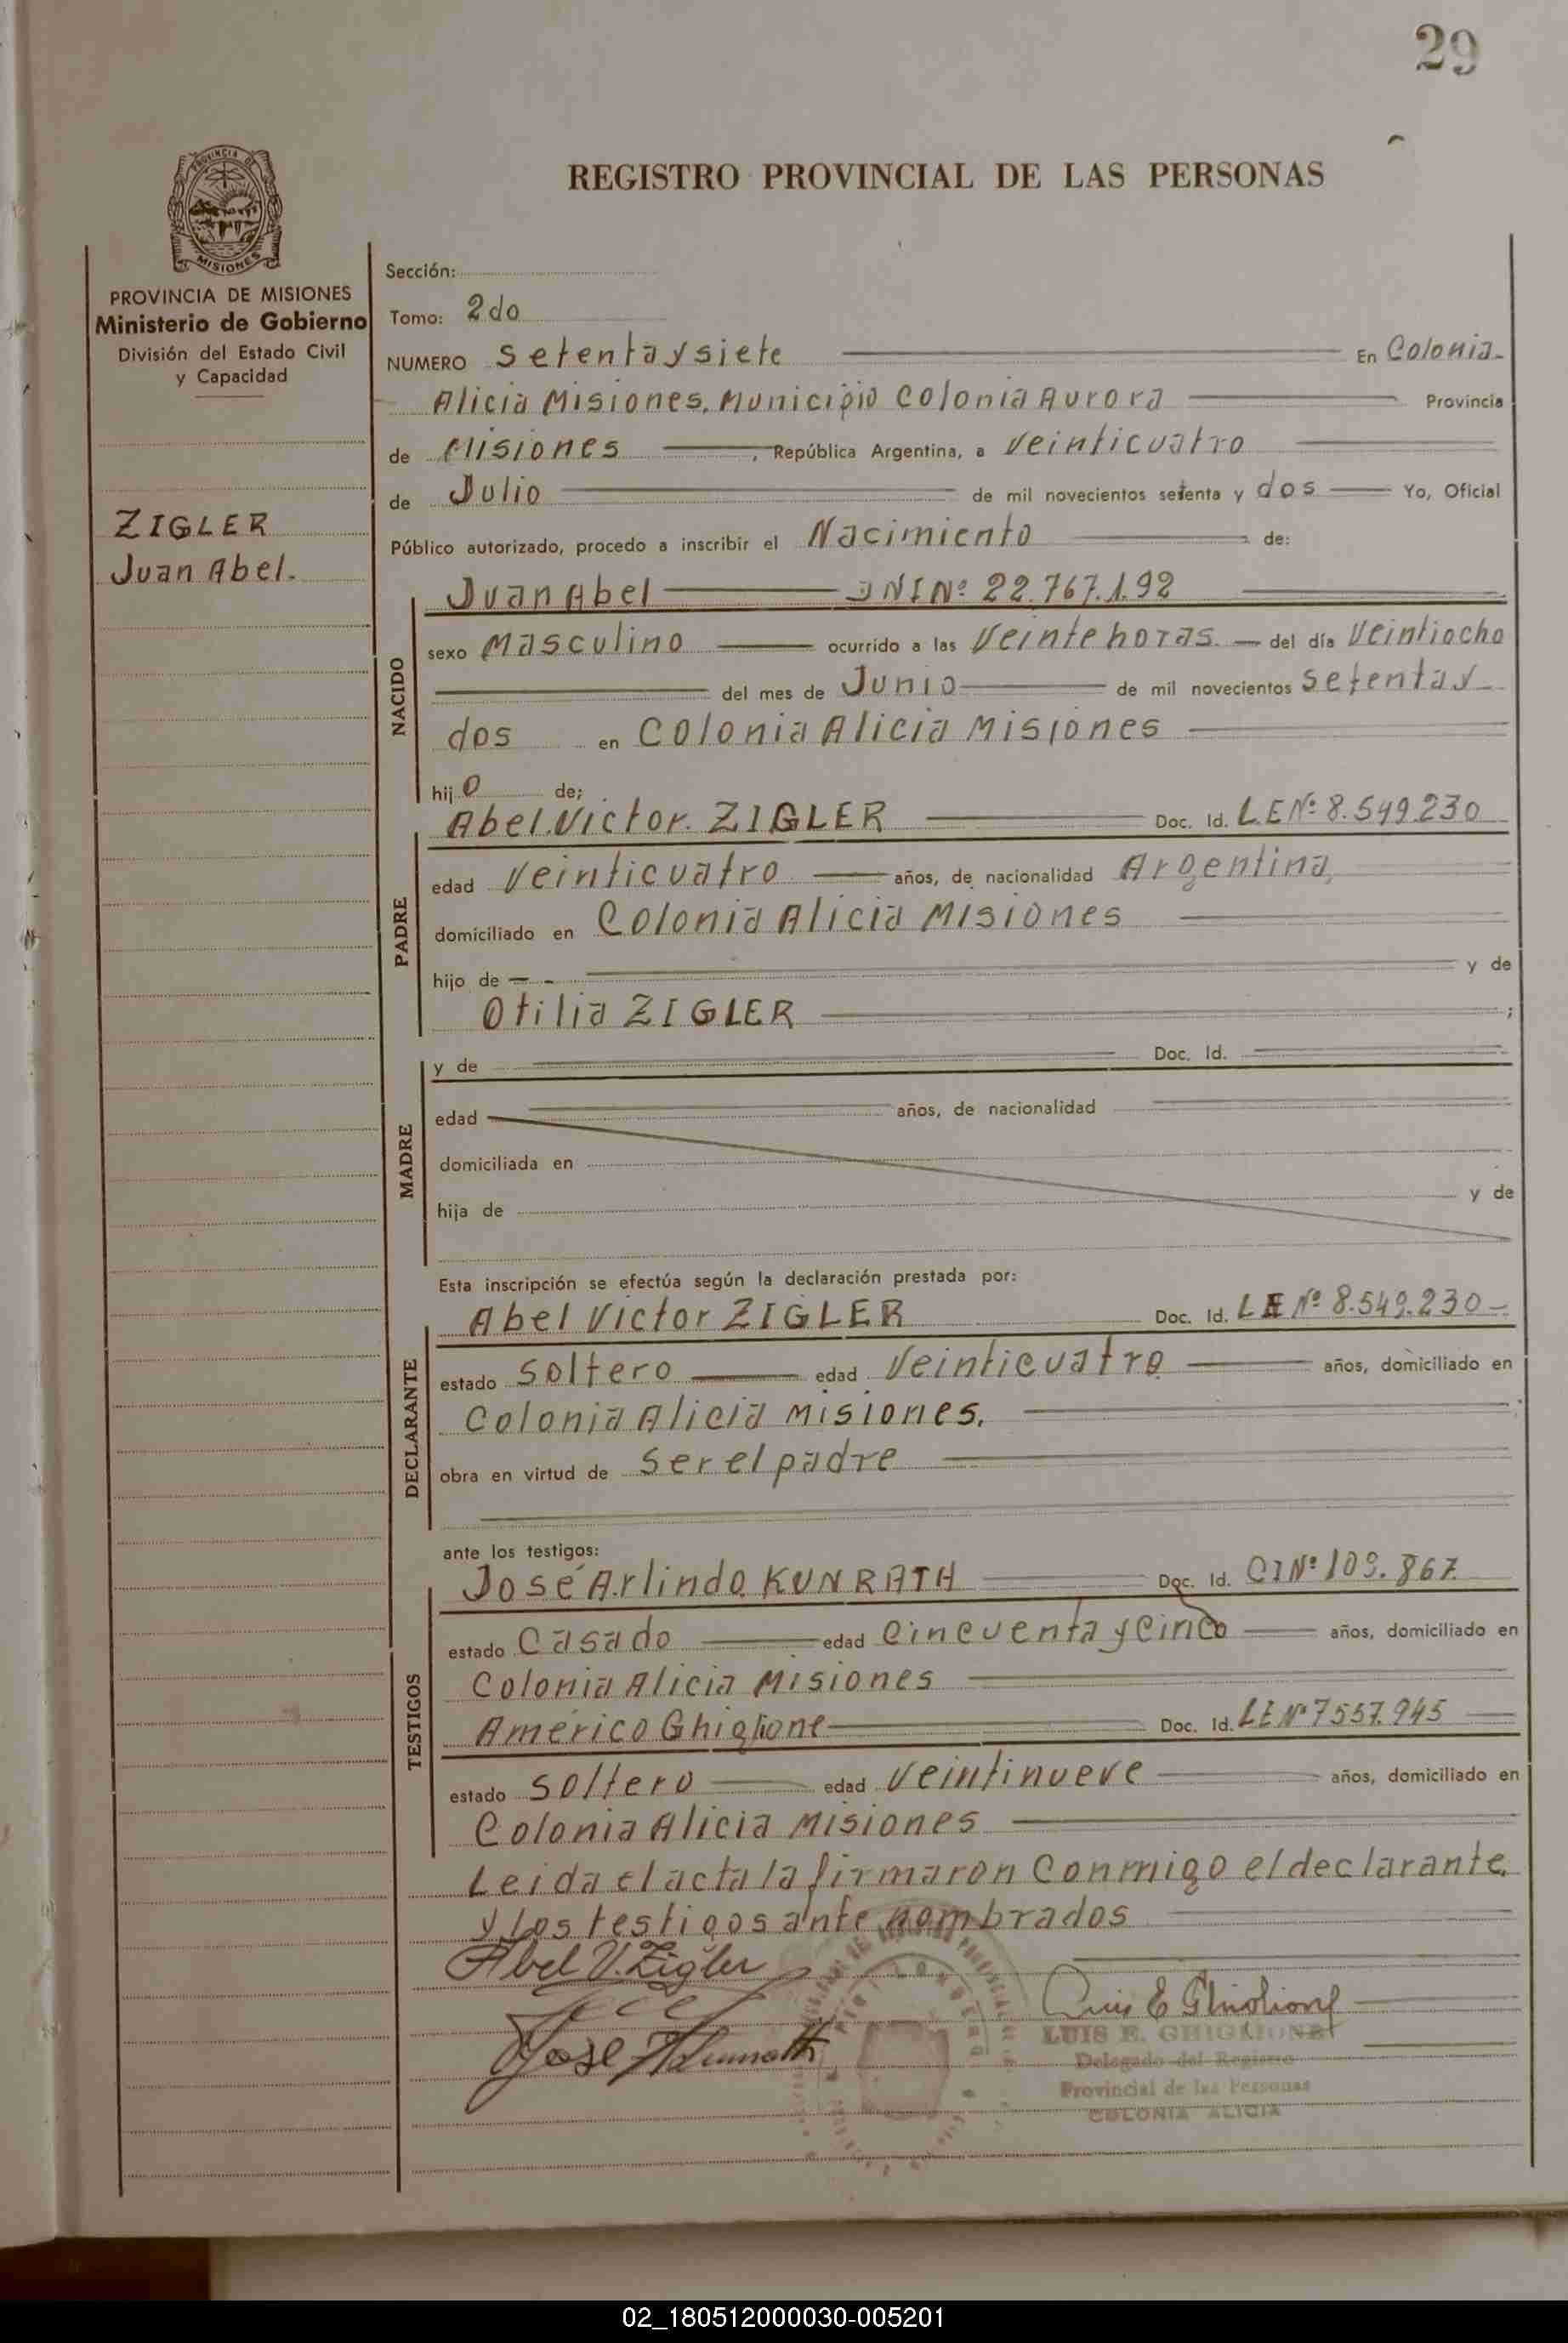 29
REGISTRO PROVINCIAL DE LAS PERSONAS
PROVINCIA DE
MISIONES
PROVINCIA DE MISIONES
Ministerio de Gobierno
División del Estado Civil
y Capacidad
ZIGLER
Juan Abel.
Sección:
Tomo: 2do
NUMERO setentaysiete En Colonia-
Alicia Misiones, Municipio Colonia Aurora Provincia
de Misiones, República Argentina, a veinticuatro
de Julio de mil novecientos setenta y dos Yo, Oficial
Público autorizado, procedo a inscribir el Nacimiento de:
NACIDO
Juan Abel DNI Nº 22.767.192
sexo Masculino ocurrido a las veinte horas. del día veintiocho
del mes de Junio de mil novecientos setentay
dos en Colonia Alicia Misiones
hijo de;
PADRE
Abel Victor. ZIGLER Doc. Id. L.E Nº 8.549.230
edad veinticuatro años, de nacionalidad Argentina,
domiciliado en Colonia Alicia Misiones
hijo de y de
Otilia ZIGLER ;
MADRE
y de Doc. Id.
edad años, de nacionalidad
domiciliada en
hija de y de
Esta inscripción se efectúa según la declaración prestada por:
DECLARANTE
Abel Victor ZIGLER Doc. Id. LE Nº 8.549.230-
estado soltero edad veinticuatro años, domiciliado en
Colonia Alicia Misiones.
obra en virtud de ser el padre
ante los testigos:
TESTIGOS
José Arlindo KUNRATH Doc. Id. CI Nº 109.867
estado Casado edad cincuenta y cinco años, domiciliado en
Colonia Alicia Misiones
Américo Ghiglione Doc. Id. LE Nº 7557.945
estado soltero edad veintinueve años, domiciliado en
Colonia Alicia Misiones
Leida el acta la firmaron conmigo el declarante,
y los testigos ante nombrados
Abel V. Zigler
Luis E Ghiglione
LUIS E. GHIGLIONE
Delegado del Registro
Provincial de las Personas
COLONIA ALICIA
02_180512000030-005201